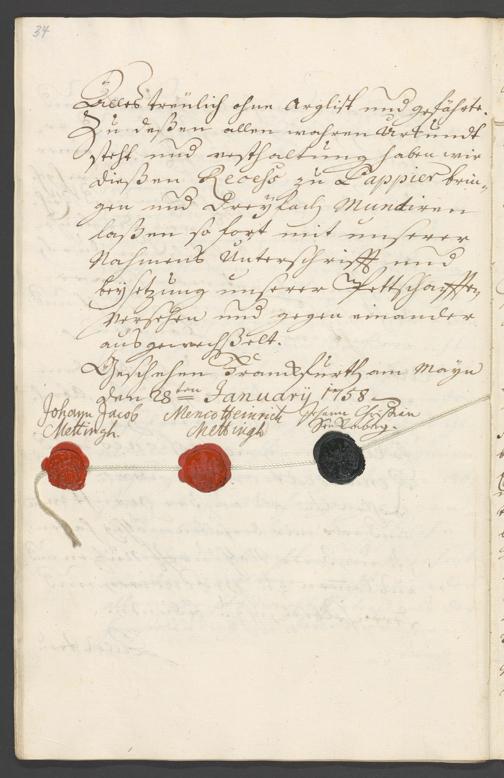 34
Alles treülich ohne Arglist und gefährte.
Zu deßen allen wahren Urkundt
steht und vesthaltung haben wir
dießen Recess zu Pappier brin-
gen und dreyfach Mundiren
laßen so fort mit unserer
Nahmens Unterschrifft und
beysetzung unserer Pettschafften
versehen und gegen einander
ausgewechßelt.
Geschehen Franckfurth am Mayn
den 28ten January 1758
Johann Jacob Menco Heinrich Johann Christian
Mettingh. Mettingh